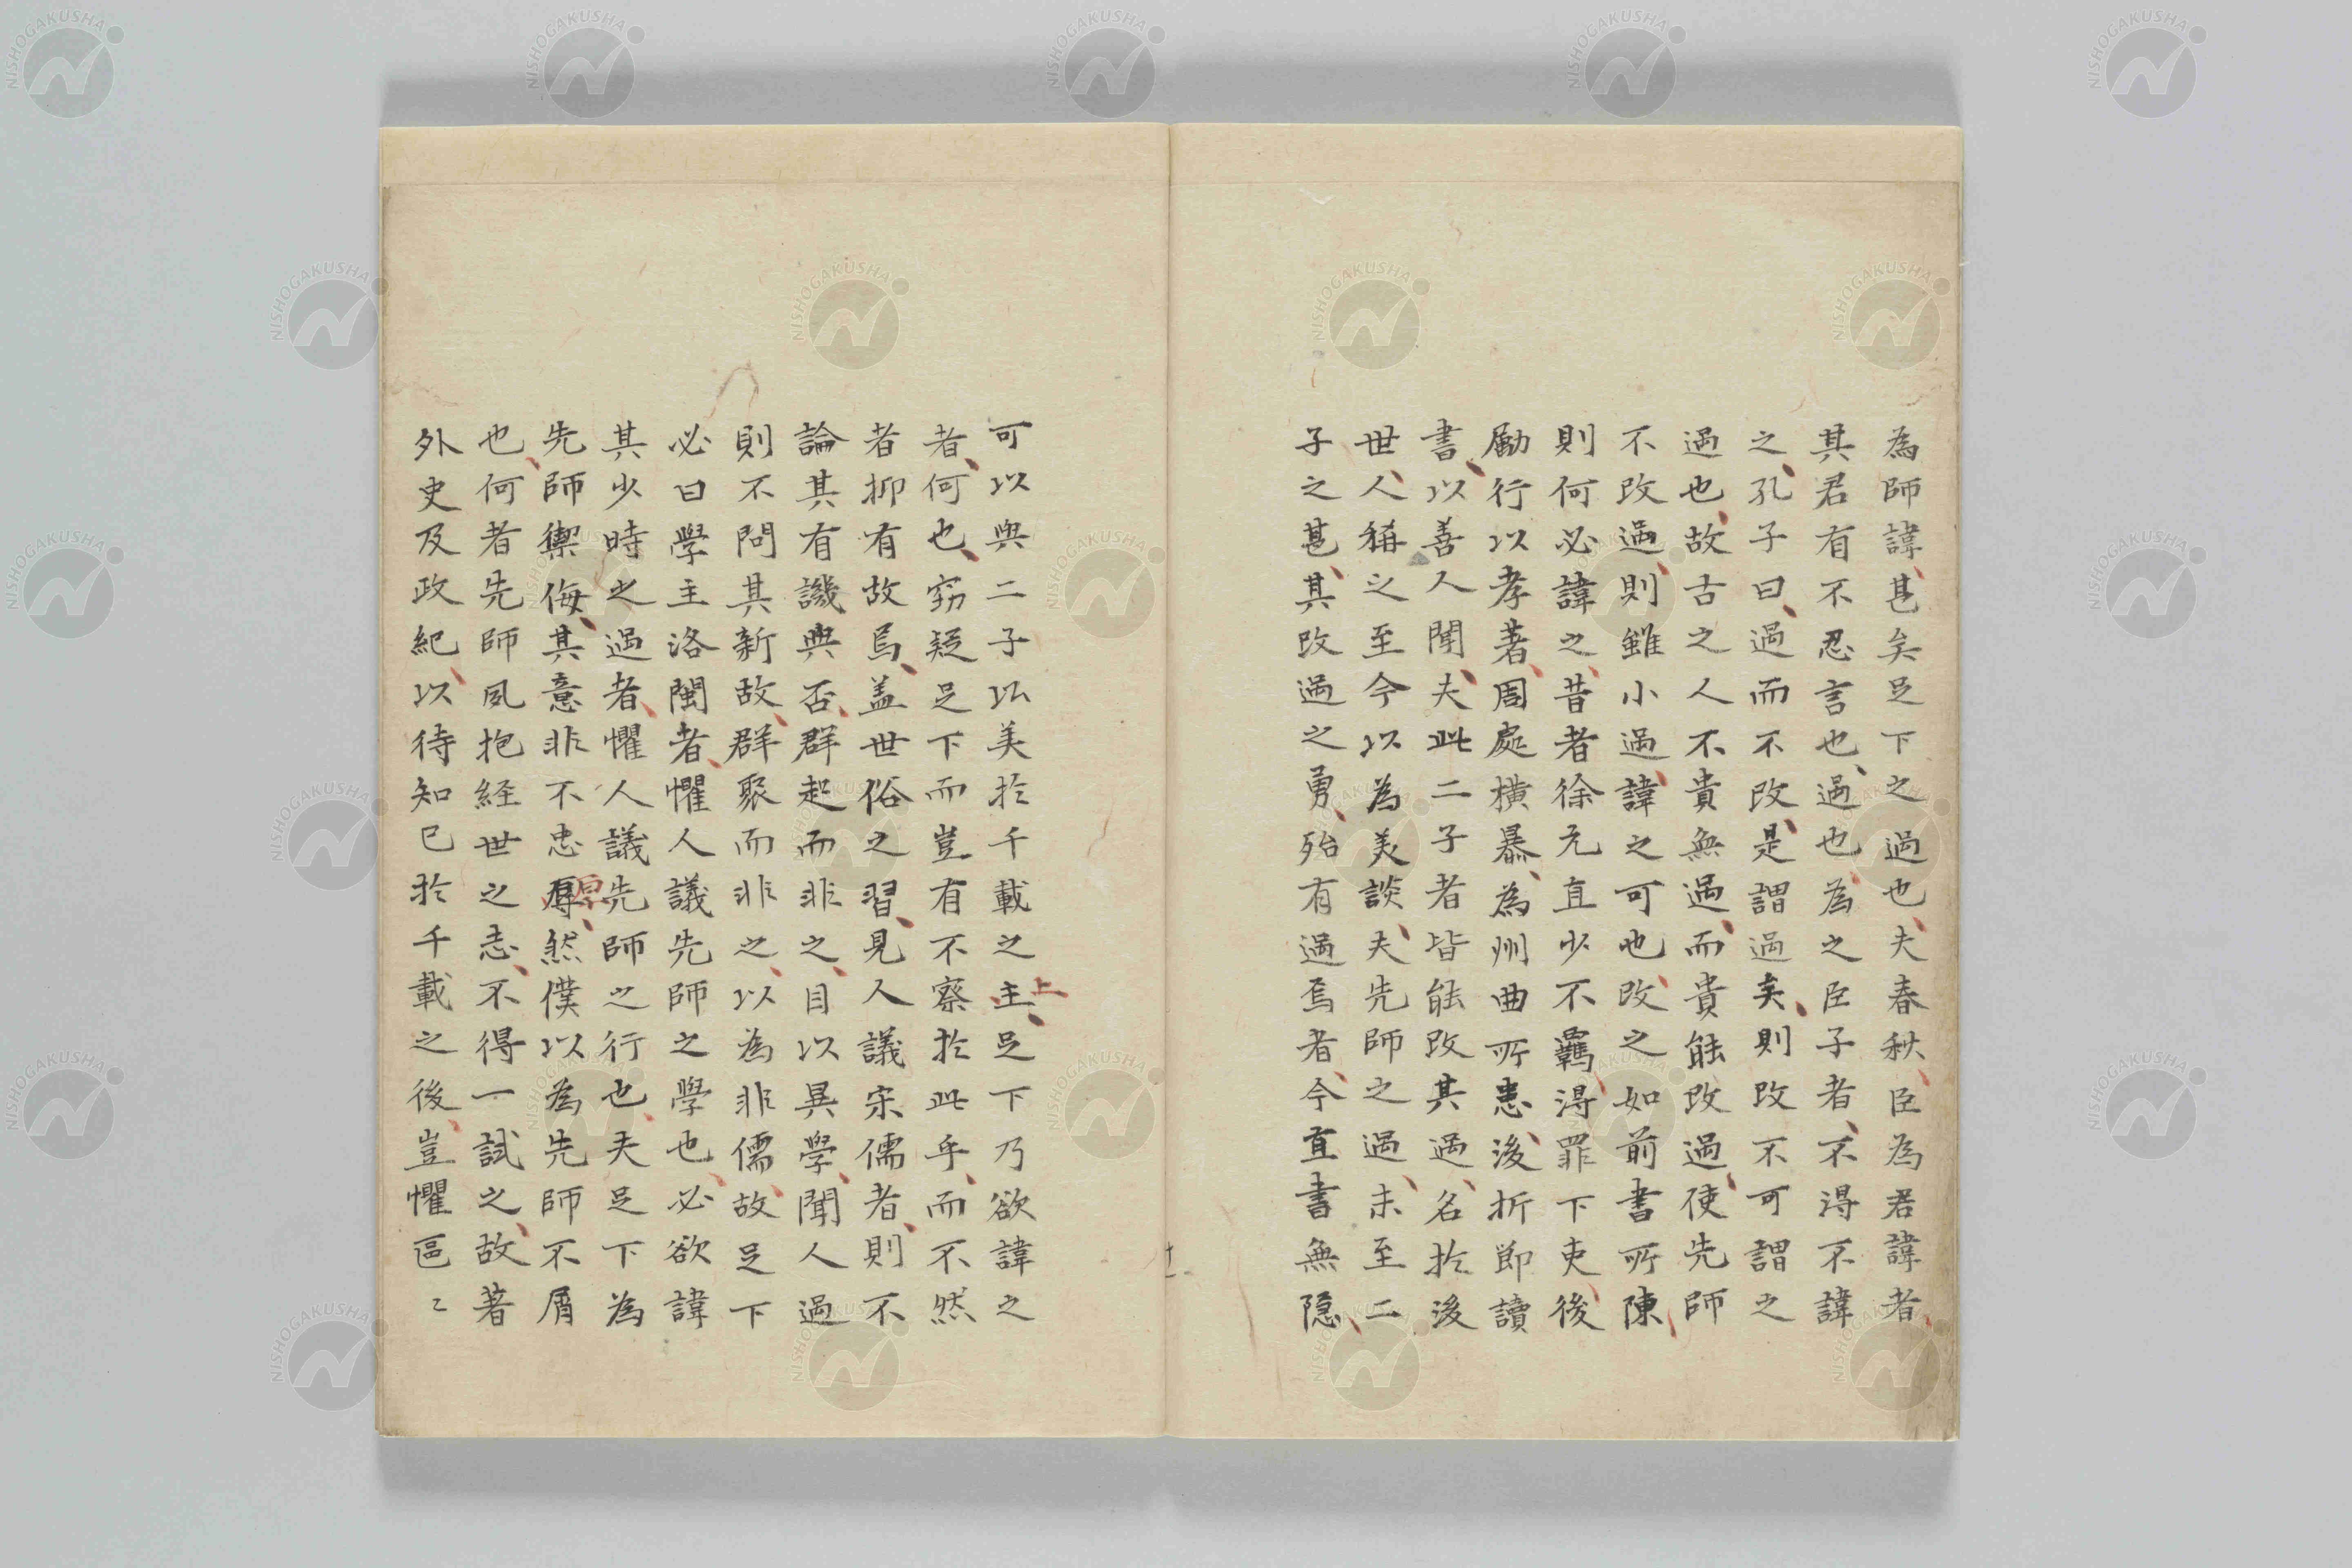 為師諱甚矣足下之過也夫春秋臣為君諱者
其君有不忍言也過也為之臣子者不得不諱
之孔子曰過而不改是謂過矣則改不可謂之
過也故古之人不貴無過而貴能改過使先師
不改過則雖小過諱之可也改之如前書所陳
則何必諱之昔者徐元直少不羈得罪下吏後
勵行以孝著周處橫暴為州曲所患後折節讀
書以善人聞夫此二子者皆能改其過名於後
世人稱之至今以為美談夫先師之過未至二
子之甚其改過之勇殆有過焉者今直書無隠
可以與二子以美於千載之主上足下乃欲諱之
者何也窃疑足下而豈有不察於此乎而不然
者抑有故焉盖世俗之習見人議宋儒者則不
論其有譏與否群起而非之目以異學聞人過
則不問其新故群聚而非之以為非儒故足下
必曰學主洛閩者懼人議先師之學也必欲諱
其少時之過者懼人議先師之行也夫足下為
先師禦侮其意非不忠厚然僕以為先師不屑
也何者先師夙抱経世之志不得一試之故著
外史及政紀以待知己於千載之後豈懼區々
NISHOGAKUSHA